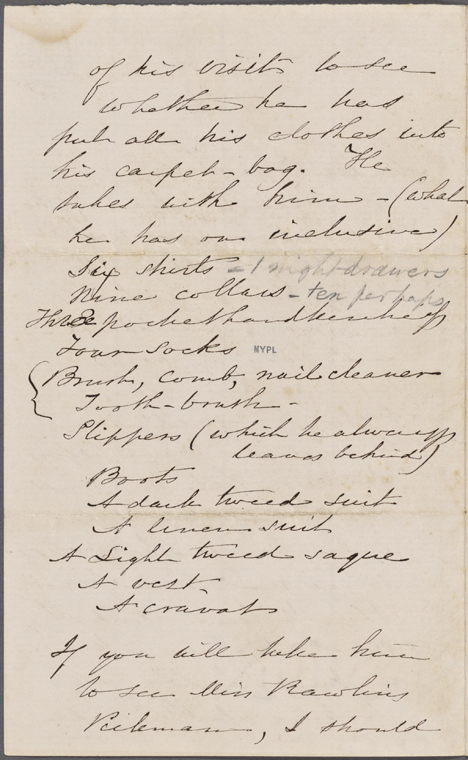 of his visit to see
whether he has
put all his clothes into
his carpet-bag. He
takes with him - (what
he has on inclusive)
Six shirts - 1 night-drawers
Nine collars - ten perhaps
Three pockethandkerchiefs
Four socks
NYPL
Brush, comb, nail cleaner
Tooth-brush -
Slippers (which he always
leaves behind)
Boots
A dark tweed suit
A linen suit
A Light tweed saque
A vest
A cravat
If you will take him
to see Miss Rawlins
I should